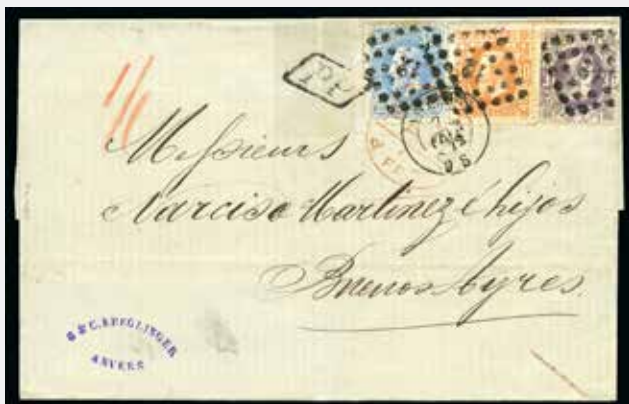 1/6
PP
Messieurs
Narciso Martinez é hijos
Buenos Ayres
G & C. KREGLINGER
ANVERS